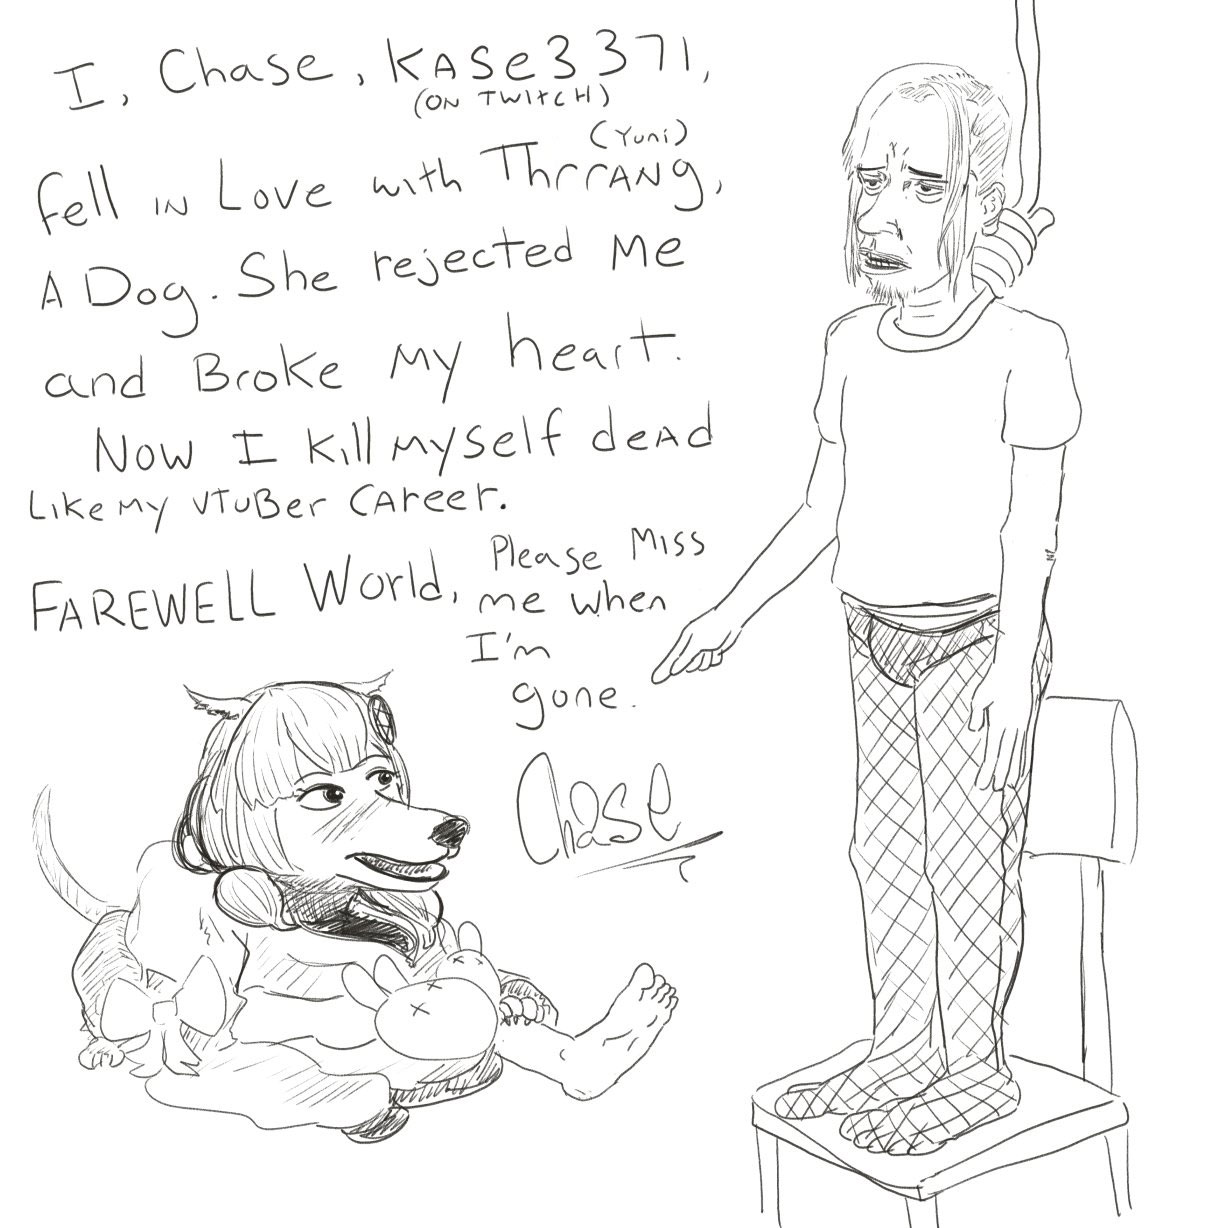 I, Chase, KASe3371,
(ON TWITCH)
(Yuni)
fell IN Love with ThrrANg,
A Dog. She rejected Me
and Broke My heart.
Now I Kill Myself deAD
Like My VTuBer CAreer.
FAREWELL World, Please Miss
me when
I'm
gone.
Chase